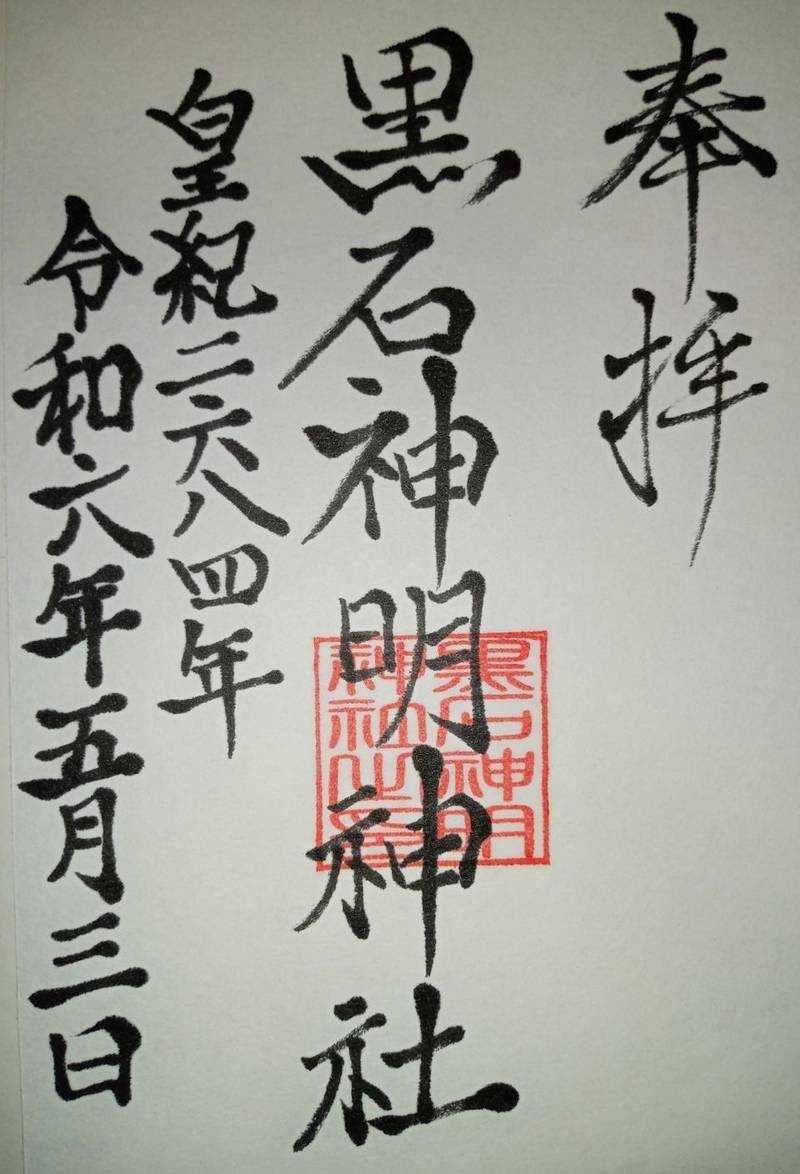 奉拝
黒石神明神社
黒石神明
神社之印
皇紀二六八四年
令和六年五月三日